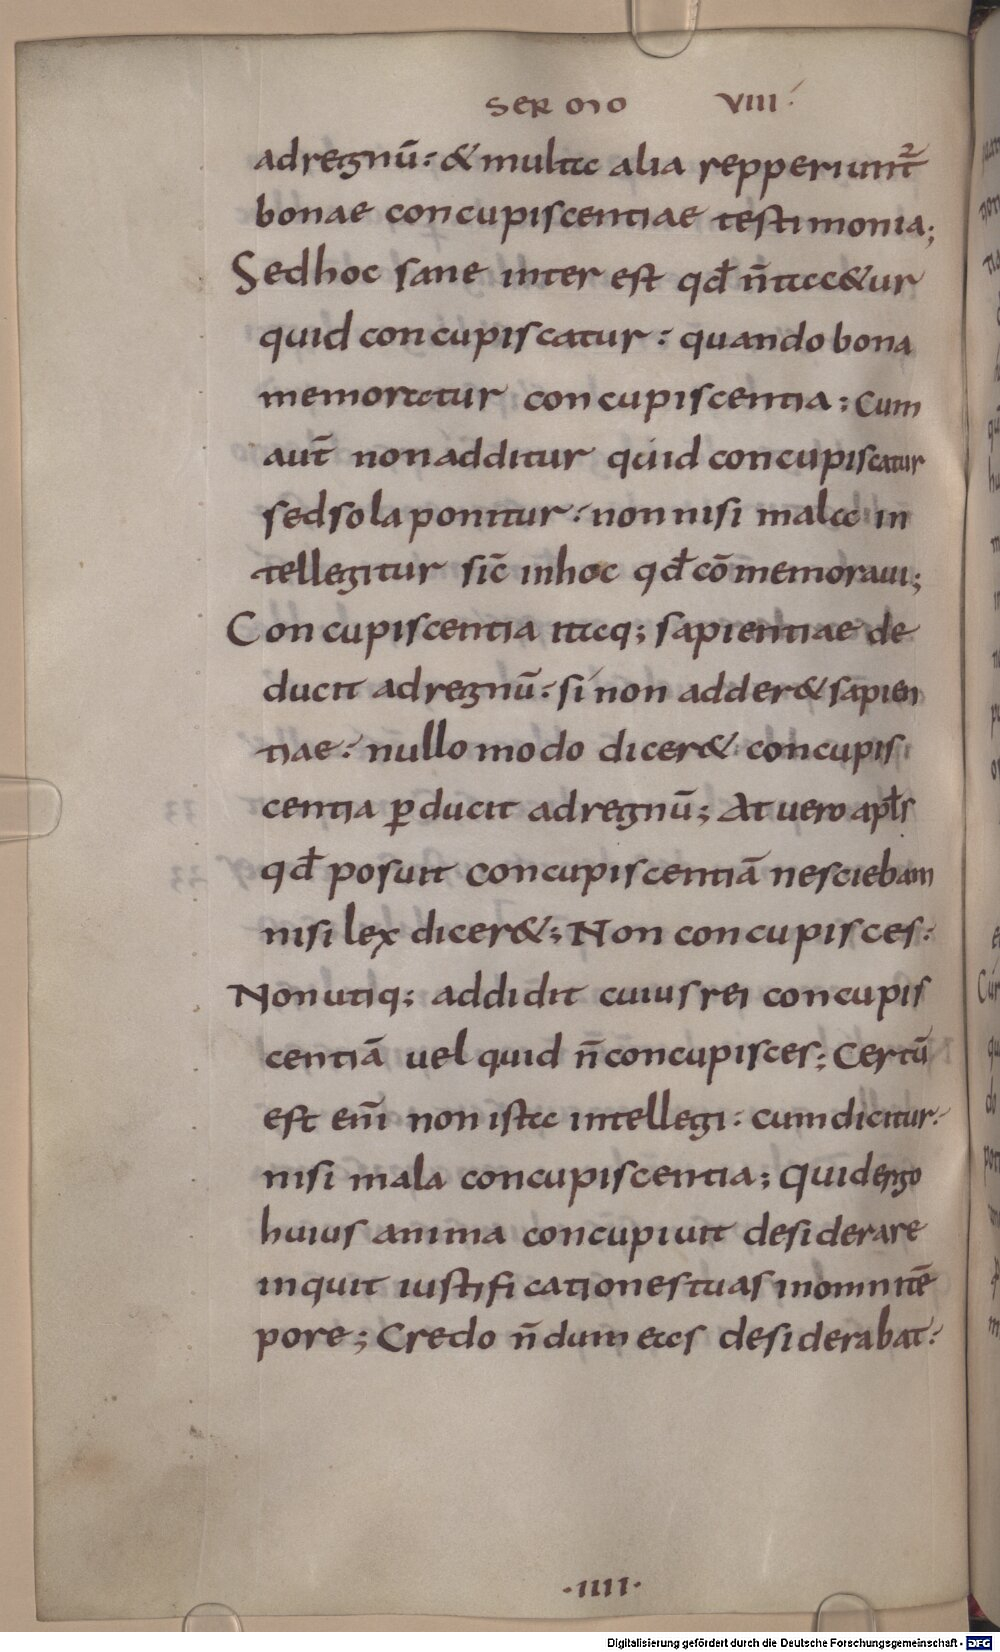 SERMO VIII.
adregnū: & multa alia repperiunt̄
bonae concupiscentiae testimonia;
Sedhoc sane inter est qđ n̄tac&ur
quid concupiscatur: quando bona
memoratur concupiscentia; Cum
aut̄ non additur quid concupiscatur
sed sola ponitur: non nisi mala in
tellegitur sic̄ inhoc qđ cōmemoraui;
Concupiscentia itaq; sapientiae de
ducit adregnū: si non adder& sapien
tiae: nullo modo dicer& concupis
centia ꝑducit adregnū; At uero apłs
qđ posuit concupiscentiā nesciebam
nisi lex dicer&; Non concupisces:
Non utiq; addidit cuius rei concupis
centiā uel quid n̄ concupisces; Certū
est enī non ista intellegi: cum dicitur:
nisi mala concupiscentia; Quid ergo
huius anima concupiuit desiderare
inquit iustificationes tuas inomni tē
pore; Credo n̄dum eas desiderabat:
·IIII·
Digitalisierung gefördert durch die Deutsche Forschungsgemeinschaft - DFG